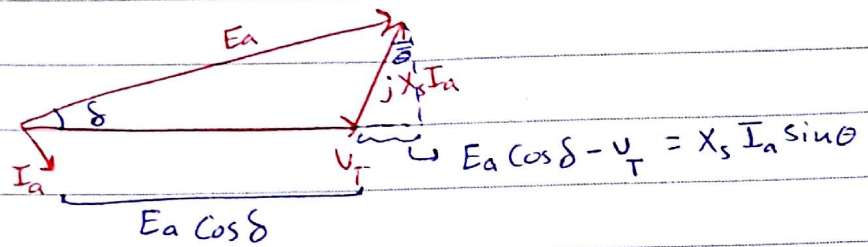 Ea
δ
θ
jXsIa
Ia
VT
Ea Cosδ - VT = Xs Ia sinθ
Ea Cosδ